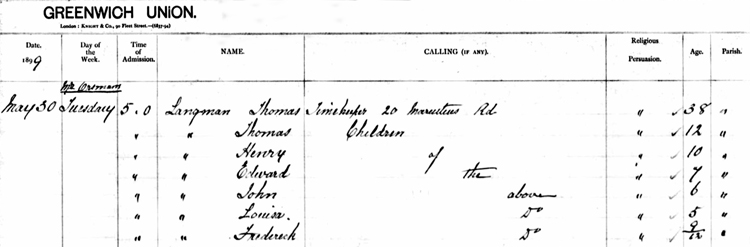 GREENWICH UNION.
London : KNIGHT & Co., 90 Fleet Street.—(1857-94)
Date. Day of the Week. Time of Admission. NAME. CALLING (IF ANY). Religious Persuasion. Age. Parish.
1899
Mr
May 30 Tuesday 5.0 Langman Thomas Timekeeper 20 Rd " ✓ 38 "
" " Thomas Children " ✓ 12 "
" " Henry of " ✓ 10 "
" " Edward the " ✓ 7 "
" " John above " ✓ 6 "
" " Louisa. Do " ✓ 5 "
" " Frederick Do " ✓ 9/12 "